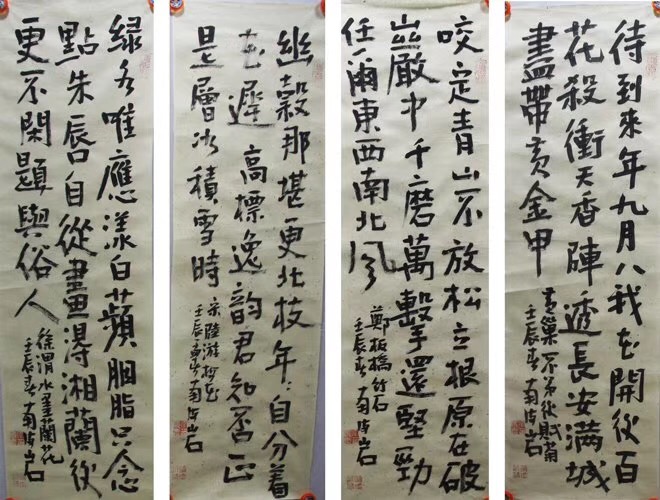 待到来年九月八我花開後百
花殺衝天香陣透長安滿城
盡帶黃金甲
黃巢不第後賦菊
壬辰春南岩
咬定青山不放松立根原在破
巖中千磨萬擊還堅勁
任爾東西南北风
鄭板橋竹石
壬辰春南岩
幽穀那堪更北枝年〻自分着
花遲高標逸韵君知否正
是層冰積雪時
宋陸游梅花
壬辰春南岩
緑水唯應漾白蘋胭脂只念
點朱唇自從畫得湘蘭後
更不閑題與俗人
徐渭水墨蘭花
壬辰春南岩